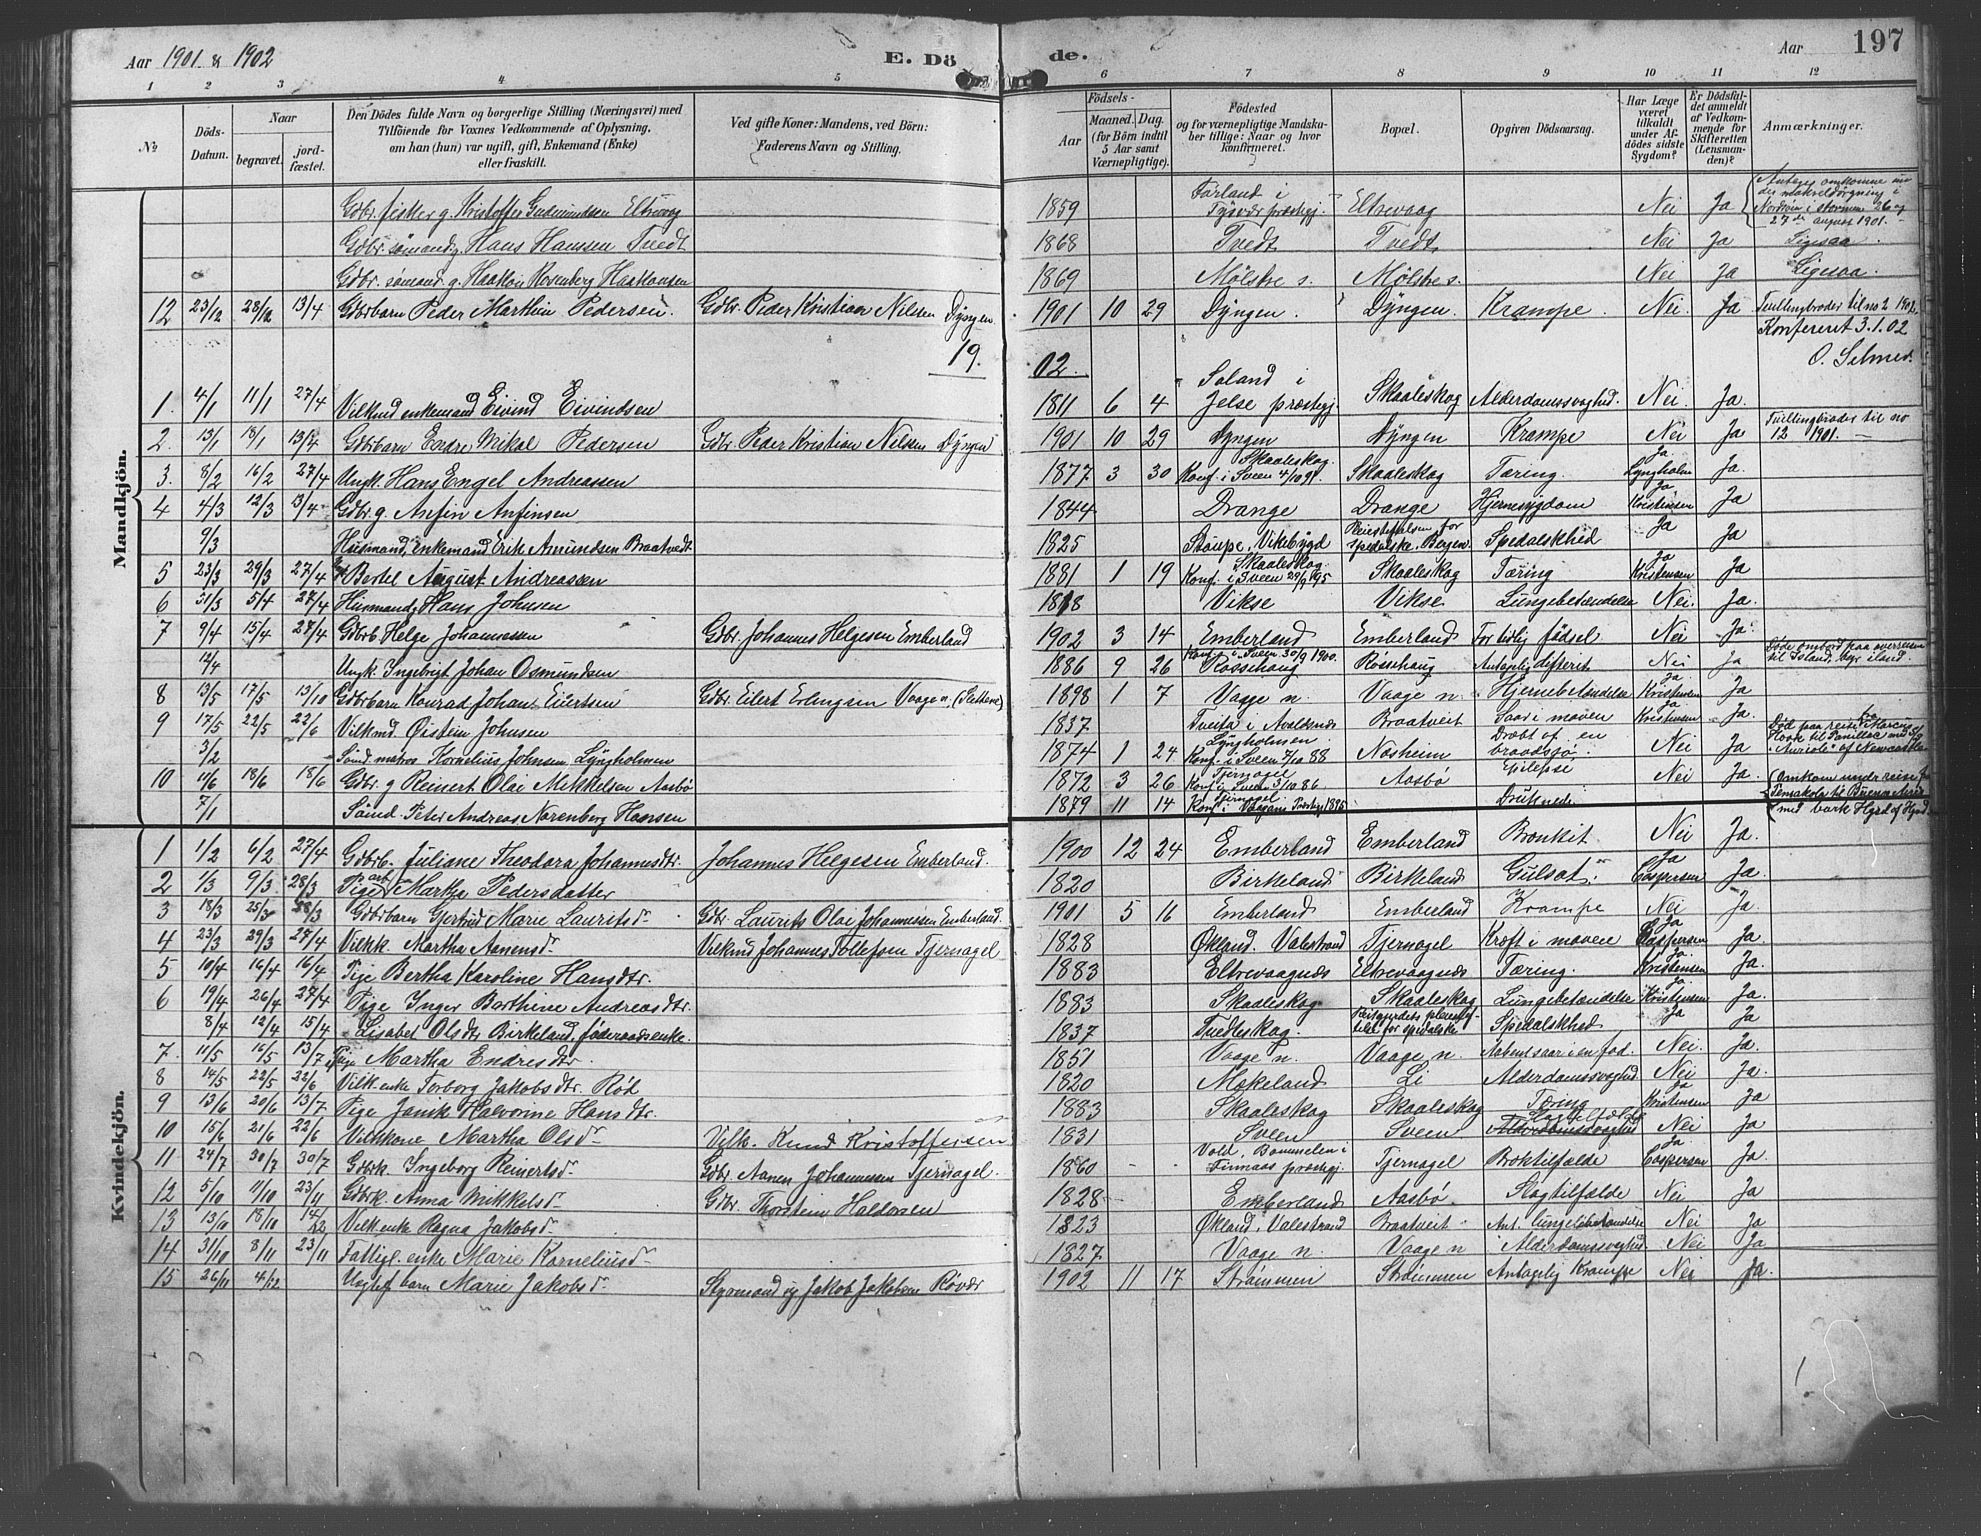 Aar 1901 & 1902 E. Dö de. Aar 197
1 2 3 4 5 6 7 8 9 10 11 12
№ Döds-Datum. Naar begravet. jordfæstet. Den Dödes fulde Navn og borgerlige Stilling (Næringsvei) med Tilföiende for Voxnes Vedkommende af Oplysning, om han (hun) var ugift, gift, Enkemand (Enke) eller fraskilt. Ved gifte Koner: Mandens, ved Börn: Faderens Navn og Stilling. Födsels- Aar Maaned. Dag. (for Börn indtil 5 Aar samt Værnepligtige). Födested og for værnepligtige Mandskaber tillige: Naar og hvor konfirmeret. Bopæl. Opgiven Dödsaarsag. Har Læge været tilkaldt under Afdödes sidste Sygdom? Er Dödsfaldet anmeldt af Vedkommende for Skifteretten (Lensmanden)? Anmærkninger.
Mandkjön.
Gdbr. fisker g. Kristoffer Gudmundsen Eltrevaag 1859 Førland i Tysvær præstegj. Eltrevaag Nei Ja omkomne makreldörgning i Nordsøen i stormen 26 og 27de august 1901.
Gdbr. sømand g. Hans Hansen Tvedt 1868 Tvedt Tvedt Nei Ja Ligesaa.
Gdbr. sømand g. Haakon Rosenberg Haakonsen 1869 Mølstre s. Mølstre s. Nei Ja Ligesaa.
12 23/12 28/12 13/4 Gdbrbarn Peder Marthin Pedersen. Gdbr. Peder Kristian Nilsen Dyngen. 1901 10 29 Dyngen. Dyngen. Krampe. Nei Ja Tvillingbroder til no 2 1902.
Konfereret 3.1.02
19 02. O. Selmer.
1. 4/1 11/1 27/4 Vilkmd enkemand Eivind Eivindsen 1811 6 4 Soland i Jelse præstegj. Skaaleskog Alderdomssvaghed. Nei. Ja.
2. 13/1 18/1 13/4 Gdbrbarn Endre Mikal Pedersen Gdbr. Peder Kristian Nilsen Dyngen 1901 10 29 Dyngen Dyngen Krampe Nei Ja Tvillingbroder til no 12 1901.
3. 8/2 16/2 27/4 Ungk. Hans Engel Andreassen 1877 3 30 Skaaleskog. Konf. i Sveen 4/10 91. Skaaleskog Tæring. Ja Lyngholm Ja.
4 4/3 12/3 13/4 Gdbr g. Anfin Anfinsen 1844 Drange Drange Hjernesygdom Ja Kristensen Ja
9/3 Husmand, Enkemand Erik Amundsen Braatvedt 1825 Stoupe, Vikebygd Pleiestiftelsen for Spedalske, Bergen. Spedalskhed Ja Ja
5 23/3 29/3 27/4 Bertel August Andreassen 1881 1 19 Skaaleskog. Konf. i Sveen 29/9 95 Skaaleskog Tæring Ja Kristensen Ja
6 31/3 5/4 27/4 Husmand Hans Johnsen 1818 Vikse Vikse Lungebetændelse Nei. Ja.
7 9/4 15/4 27/4 Gdbrb. Helge Johannessen Gdbr. Johannes Helgesen Emberland 1902 3 14 Emberland Emberland For tidlig fødsel Nei Ja.
12/4 Ungk. Ingebrigt Johan Osmundsen 1886 9 26 Konf. i Sveen 30/9 1900. Røsschaug Røsschaug Antagelig difterit Nei Ja Døde ombord paa overreisen til Island, begr. iland.
8 13/5 17/5 13/10 Gdbrbarn Konrad Johan Eilertsen Gdbr. Eilert Erlingsen Vaage n. 1898 1 7 Vaage n. Vaage n. Hjernebetændelse Ja Kristensen Ja
9 17/5 22/5 22/6 Vilkmd. Øistein Johnsen 1837 Tveita i Avaldsnes Braatveit Saar i maven Ja Kristensen Ja.
3/2 Sømd. matros Kornelius Johnsen Lyngholmen 1874 1 24 Lyngholmen Konf. i Sveen 7/10 88 Nosheim Dræbt af en braadsø. Nei Ja Død paa reise fra Marcus Hook til Panillac med S/S "Auriole" af Newcastle
10 11/6 18/6 18/6 Gdbr. g. Reinert Olai Mikkelsen Aasbø 1872 3 26 Tjernagel Konf. i Sveen 3/10 86 Aasbø Epilepsi Nei Ja. (Omkom under reise fra Pensakola til Buenos Aires med bark
7/1 Sømd. Peter Andreas Norenberg Hansen 1879 11 14 Tjernagel. Konf. i præstegj. 1895 Druknede
Kvindekjön.
1 1/2 6/2 27/4 Gdbrb. Juliane Theodora Johannesdtr. Johannes Helgesen Emberland. 1900 12 24 Emberland Emberland Bronkit. Nei Ja.
2 1/3 9/3 28/3 Pige Martha Pedersdatter 1820 Birkeland Birkeland Gulsot. Ja Caspersen Ja.
3 18/3 25/3 28/3 Gdbrbarn Gertrud Marie Lauritsdr. Gdbr. Laurits Olai Johannessen Emberland. 1901 5 16 Emberland Emberland Krampe Nei Ja.
4 23/3 29/3 27/4 Vilkk. Martha Aanensdr. Vilkmd Johannes Tollefsen Tjernagel 1828 Økland. Valestrand Tjernagel Kræft i maven Ja Caspersen Ja.
5 10/4 16/4 16/4 Pige Bertha Karoline Hansdtr. 1883 Eltrevaagnæs Eltrevaagnæs Tæring. Ja Kristensen Ja.
6 19/4 26/4 27/4 Pige Inger Barthine Andreasdtr. 1883 Skaaleskog. Skaaleskog Lungebetændelse Ja Kristensen Ja.
8/4 12/4 15/4 Lisabet Olsdtr Birkeland, føderaadsenke. 1837 Tvedtskog Reitgjerdets pleiestiftelse for spedalske Spedalskhed Ja Ja
7. 11/5 16/5 13/7 Pige Martha Endresdtr. 1851 Vaage n. Vaage n. Aabent saar i en fod. Nei. Ja.
8 14/5 22/5 22/6 Vilk.enke Torborg Jakobsdtr. Rød 1820 Mækeland Li Alderdomssvaghed Nei Ja.
9 13/6 20/6 13/7 Pige Janik Halvorine Hansdtr. 1883 Skaaleskog Skaaleskog Tæring Ja Kristensen Ja
10 15/6 21/6 22/6 Vilkkone Martha Olsdr. Vilk. Knud Kristoffersen 1831 Sveen Sveen Slagtilfælde Alderdomssvaghed Nei Ja
11 24/7 30/7 30/7 Gdbrk. Ingeborg Reinertsdr. Gdbr. Aanen Johannessen Tjernagel. 1860 Vold, Bømmelen i Finnaas præstegj. Tjernagel Ja Caspersen Ja.
12 5/10 11/10 23/11 Gdbrk. Anna Mikkelsdr. Gdbr. Thorstein Haldorsen 1828 Emberland Aasbø. Slagtilfælde Nei Ja
13 13/10 18/10 14/12 Vilk.enke Ragna Jakobsdr. 1823 Økland, Valestrand Braatveit Ant. lungebetændelse Nei Ja
14 31/10 8/11 23/11 Fattigl. enke Marie Korneliusdr. 1827 Vaage n. Vaage n Alderdomssvaghed Nei Ja
15 26/11 4/12 Uægtef. barn Marie Jakobsdr. Styrmand ug Jakob Jakobsen Røvær 1902 11 17 Strømmen Strømmen Antagelig Krampe Nei Ja.